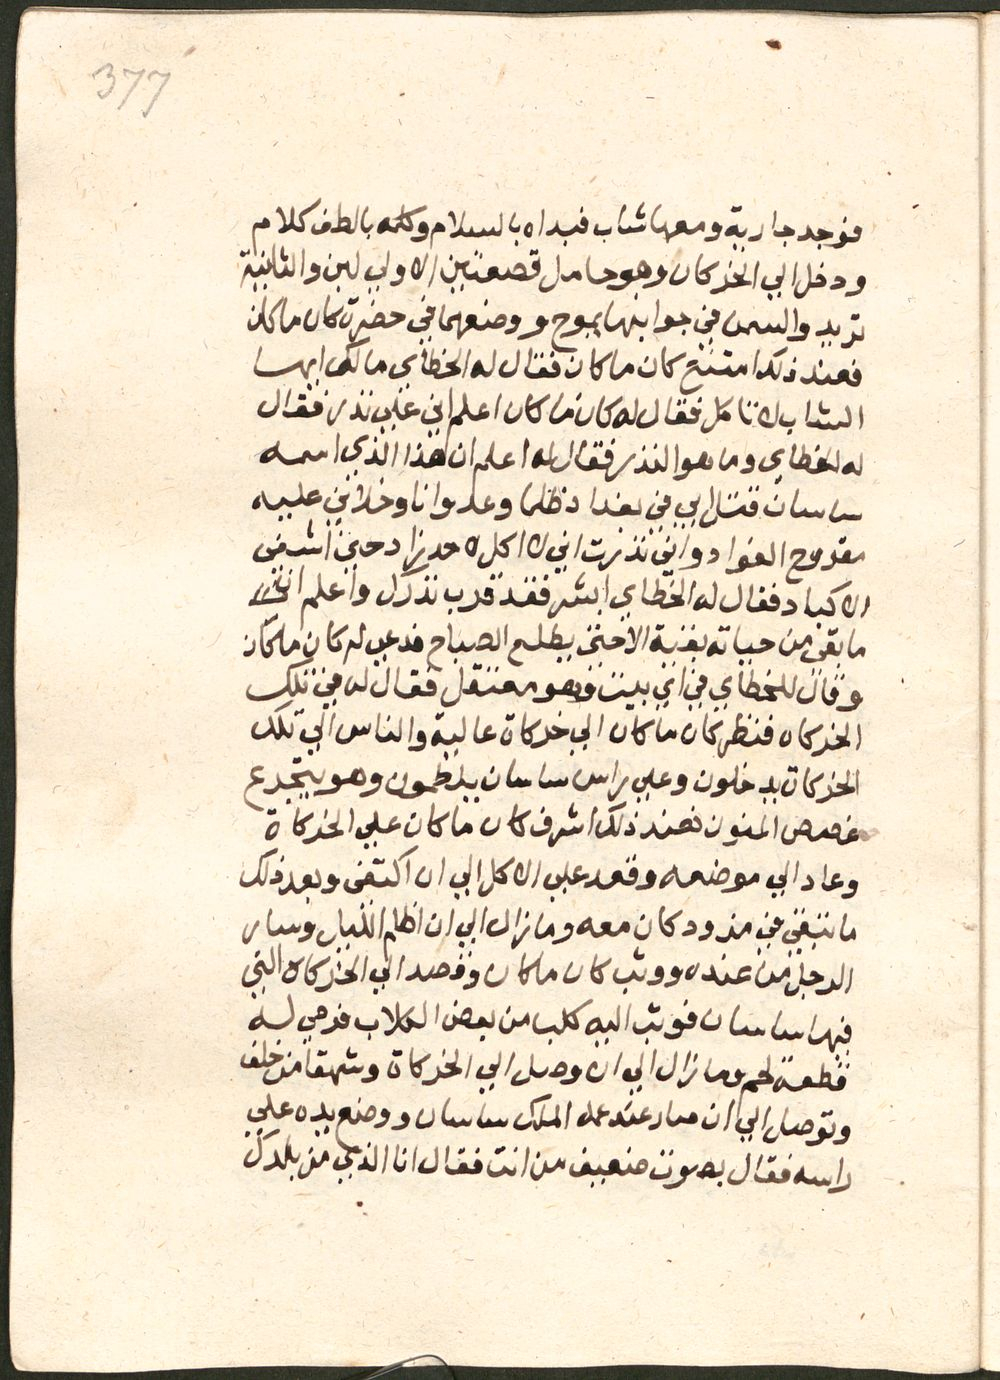 377
فوجد جارية ومعها شاب فبداه بالسلام وكلمه بالطف كلام
ودخل الي الخركاه وهو حامل قصعتين الاولي لبن والثانية
تريد والسمن في جوانبها يموج ووضعهما في حضرة كان ماكان
فعند ذلك امتنع كان ماكان فقال له الخطاي مالك ايها
الشاب لا تاكل فقال له كان ماكان اعلم اني علي نذر فقال
له الخطاي وما هو النذر فقال له اعلم ان هذا الذي اسمه
ساسان قتل ابي في بغداد ظلما وعدوانا وخلاني عليه
مقروح الفواد واني نذرت اني لا اكل لاحد زاد حتي اشفي
الاكباد فقال له الخطاي ابشر فقد قرب نذرك واعلم انه
ما بقي من حياته بقية الاحتي يطلع الصباح فدعي له كان ماكان
وقال للخطاي في اي بيت وهو معتقل فقال له في تلك
الخركاه فنظر كان ماكان الي خركاة عالية والناس الي تلك
الخركاة يدخلون وعلي راس ساسان يلطمون وهو يتجرع
غصص المنون فعند ذلك اشرف كان ماكان علي الخركاة
وعاد الي موضعه وقعد علي الاكل الي ان اكتفي وبعد ذلك
ما تبقي في مزود كان معه ومازال الي ان اظلم الليل وسار
الرجل من عنده ووثب كان ماكان وقصد الي الخركاه التي
فيها ساسان فوثب اليه كلب من بعض الكلاب فرمي له
قطعة لحم ومازال الي ان وصل الي الخركاة وشقها من خلف
وتوصل الي ان صار عند عمه الملك ساسان ووضع يده علي
راسه فقال بصوت ضعيف من انت فقال انا الذي من بلدك